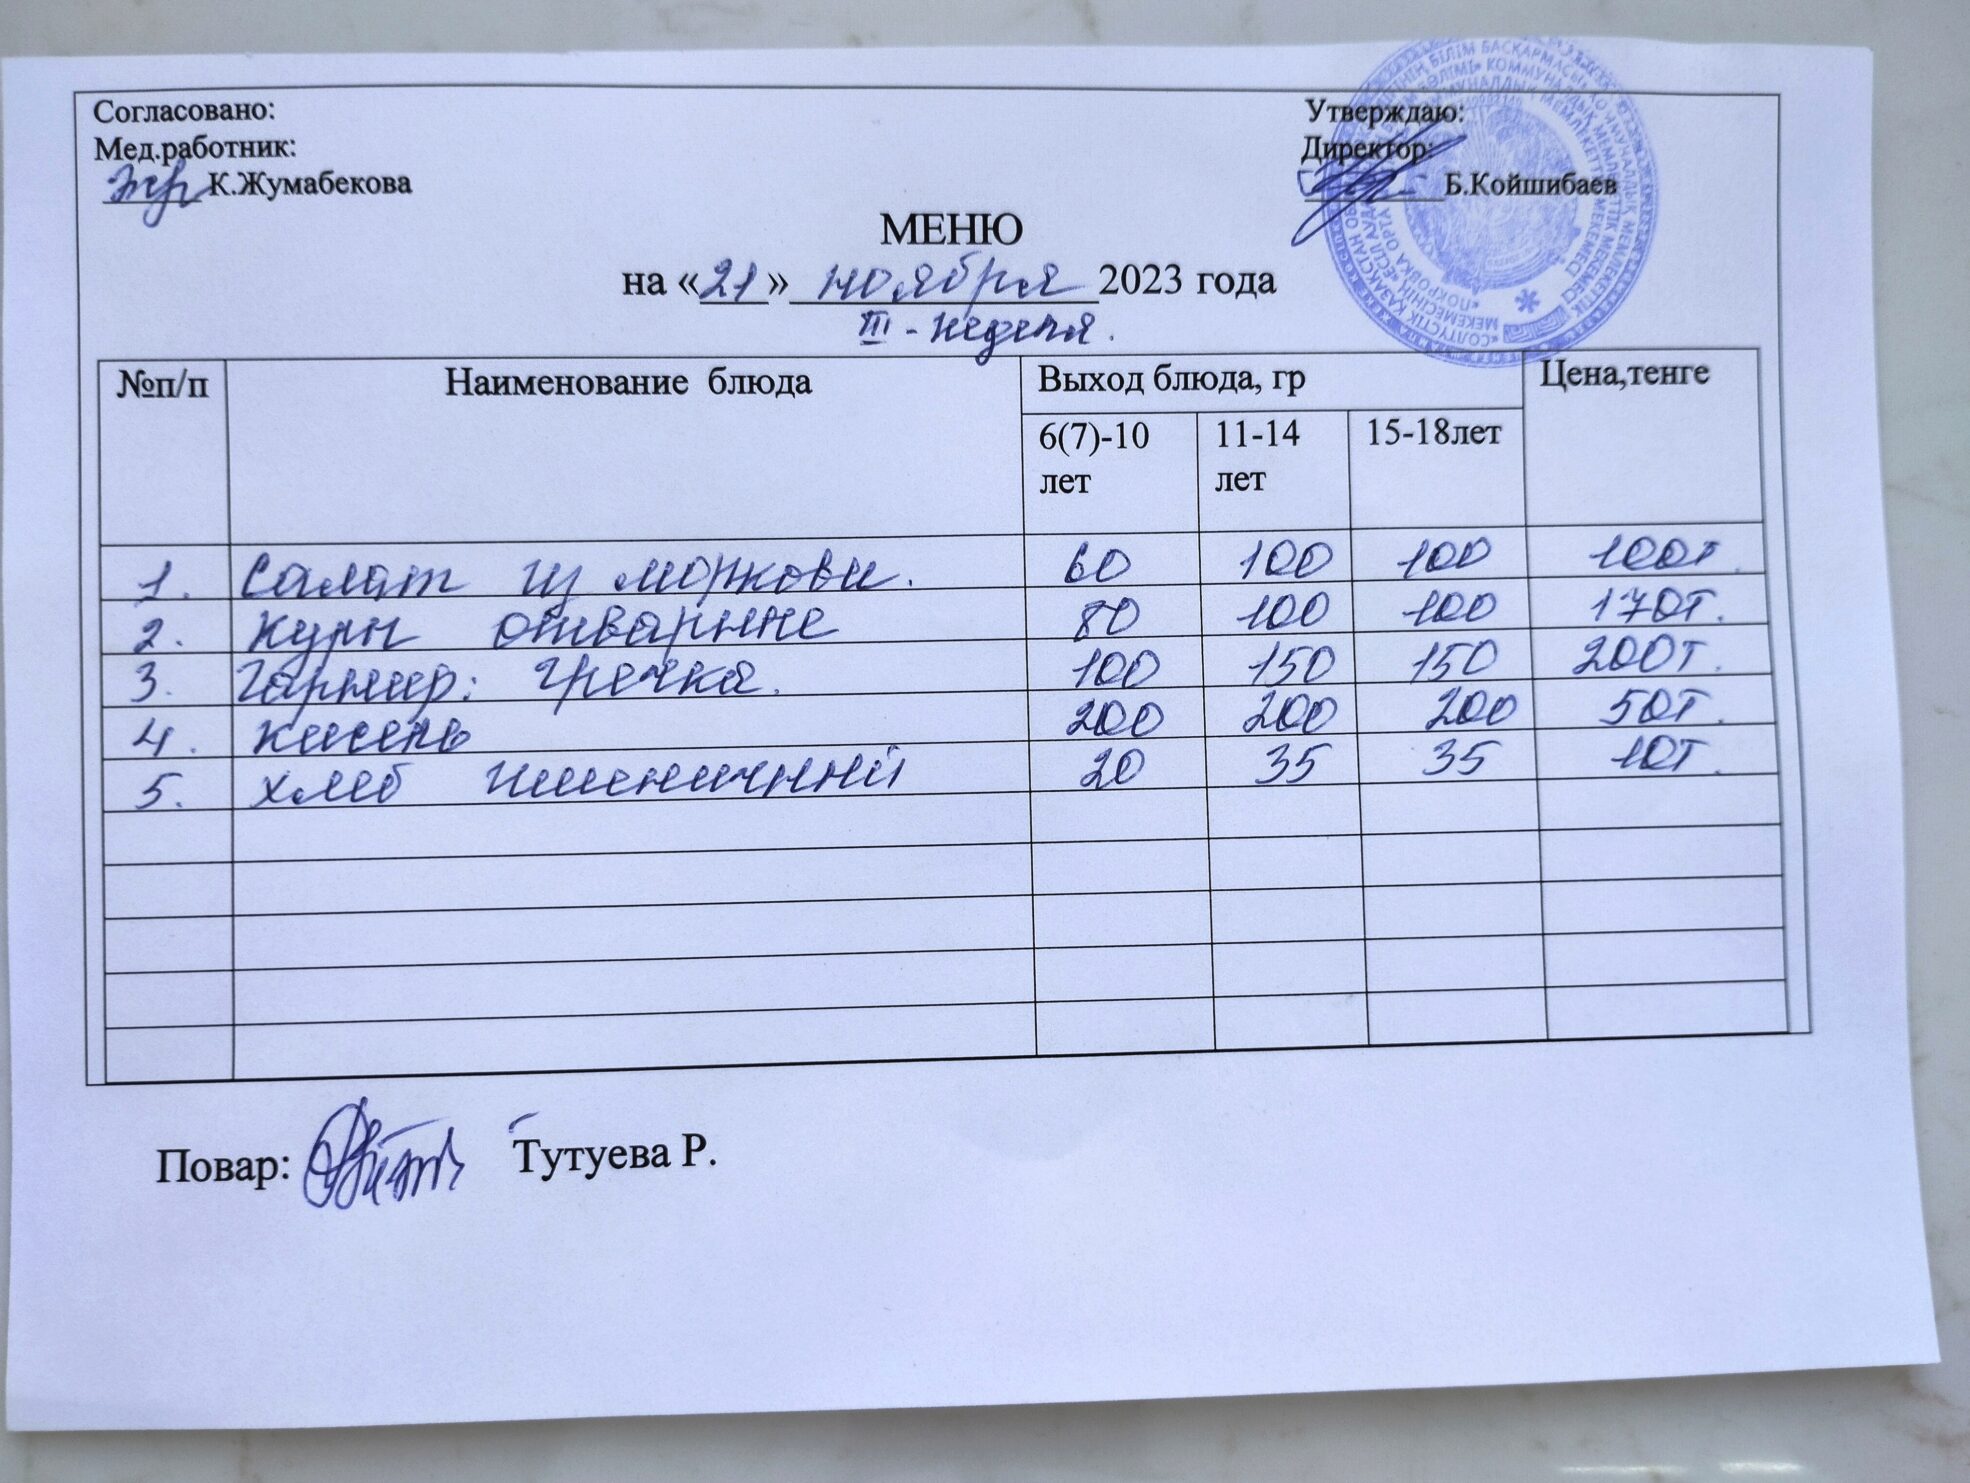 Согласовано:
Мед.работник:
К.Жумабекова
Утверждаю:
Директор:
Б.Койшибаев
МЕНЮ
на «21» ноября 2023 года
III - неделя.
№п/п Наименование блюда Выход блюда, гр Цена,тенге
6(7)-10 лет 11-14 лет 15-18лет
1. Салат из моркови. 60 100 100 100т.
2. Куры отварные 80 100 100 170т.
3. Гарнир: гречка. 100 150 150 200т.
4. кисель 200 200 200 50т.
5. хлеб пшеничный 20 35 35 10т.
Повар: Тутуева Р.